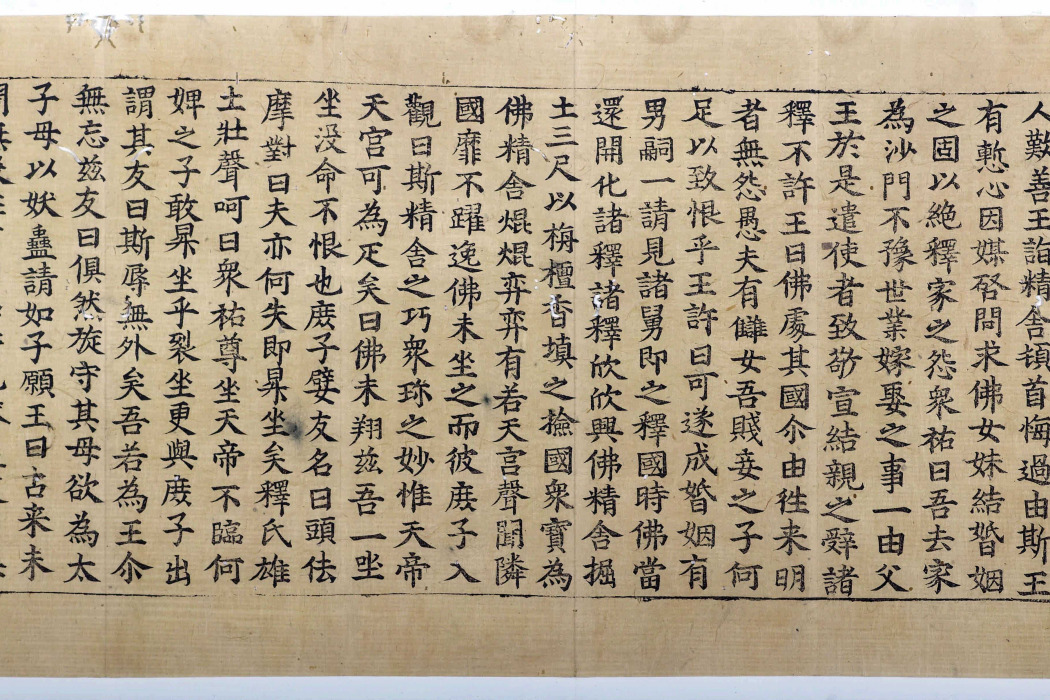 人歎善王詣精舍頓首悔過由斯王
有慙心因媒啓問求佛女妹結婚姻
之固以絶釋家之怨衆祐曰吾去家
為沙門不豫世業嫁娶之事一由父
王於是遣使者致敬宣結親之辭諸
釋不許王曰佛處其國尒由徃来明
者無怨愚夫有讎女吾賤妾之子何
足以致恨乎王許曰可遂成婚姻有
男嗣一請見諸舅即之釋國時佛當
還開化諸釋諸釋欣欣興佛精舍掘
土三尺以栴檀香填之撿國衆寶為
佛精舍焜焜弈弈有若天宮聲聞隣
國靡不躍逸佛未坐之而彼庶子入
觀曰斯精舍之巧衆珎之妙惟天帝
天官可為疋矣曰佛未翔玆吾一坐
坐没命不恨也庶子嬖友名曰頭佉
摩對曰夫亦何失即昇坐矣釋氏雄
士壯聲呵曰衆祐尊坐天帝不臨何
婢之子敢昇坐乎裂坐更興庶子出
謂其友曰斯辱無外矣吾若為王尒
無忘玆友曰俱然旋守其母欲為太
子母以妖蠱請如子願王曰古来未